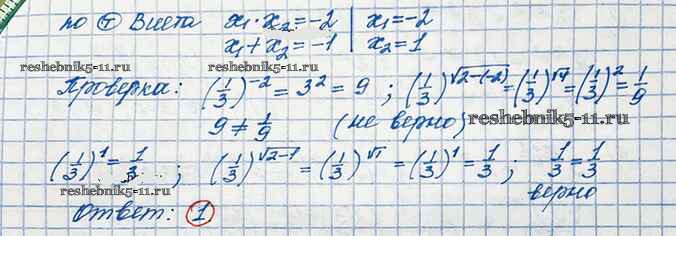 по Ⓣ Виета x₁·x₂=-2 | x₁=-2
x₁+x₂=-1 | x₂=1
reshebnik5-11.ru reshebnik5-11.ru
Проверка: (1/3)⁻²=3²=9 ; (1/3)^√(2-(-2))=(1/3)^√4=(1/3)²=1/9
9≠1/9 (не верно) reshebnik5-11.ru
(1/3)¹=1/3 ; (1/3)^√(2-1)=(1/3)^√1=(1/3)¹=1/3 ; 1/3=1/3
reshebnik5-11.ru reshebnik5-11.ru верно
Ответ: 1